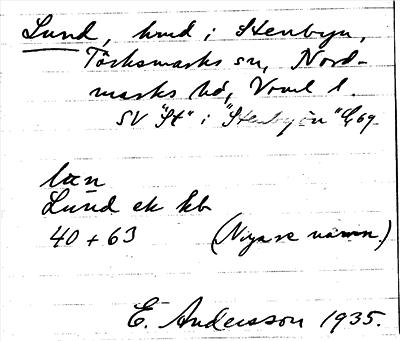 Lund, hmd i Stenbyn,
Törksmarks sn, Nord-
marks hd, Vrml l.
SV "St" i "Stenbyn" Ek 69
lun
Lund ek kb
40 + 63 (Nyare namn.)
E. Andersson 1935.